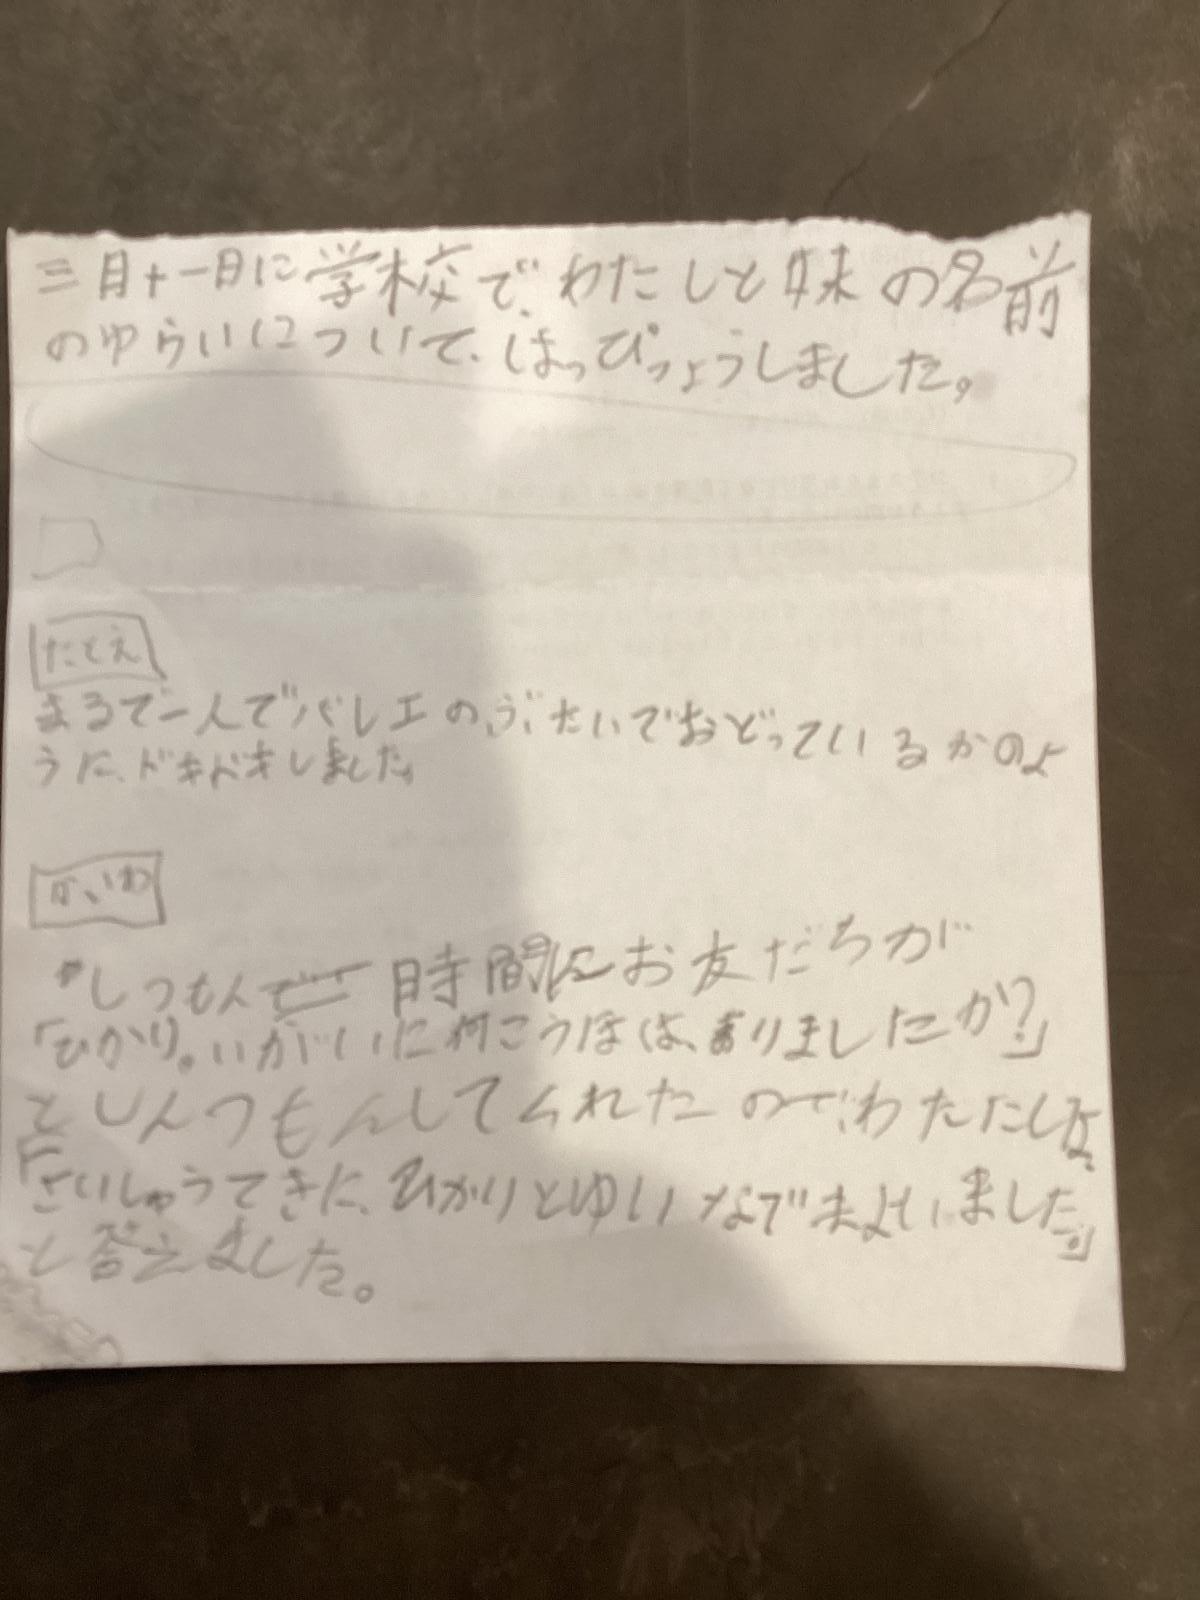 三月十一日に学校で、わたしと妹の名前
のゆらいについて、はっぴっょうしました。
たとえ
まるで一人でバレエのぶたいでおどっているかのよ
うに、ドキドキしました
かいわ
しつもん時間にお友だちが
「ひかり。いがいに何こうほは、ありましたか?」
としんつもんしてくれたので、わたたしは、
「さいしゅうてきに、ひかりとゆいなでまよいました。」
と答えました。